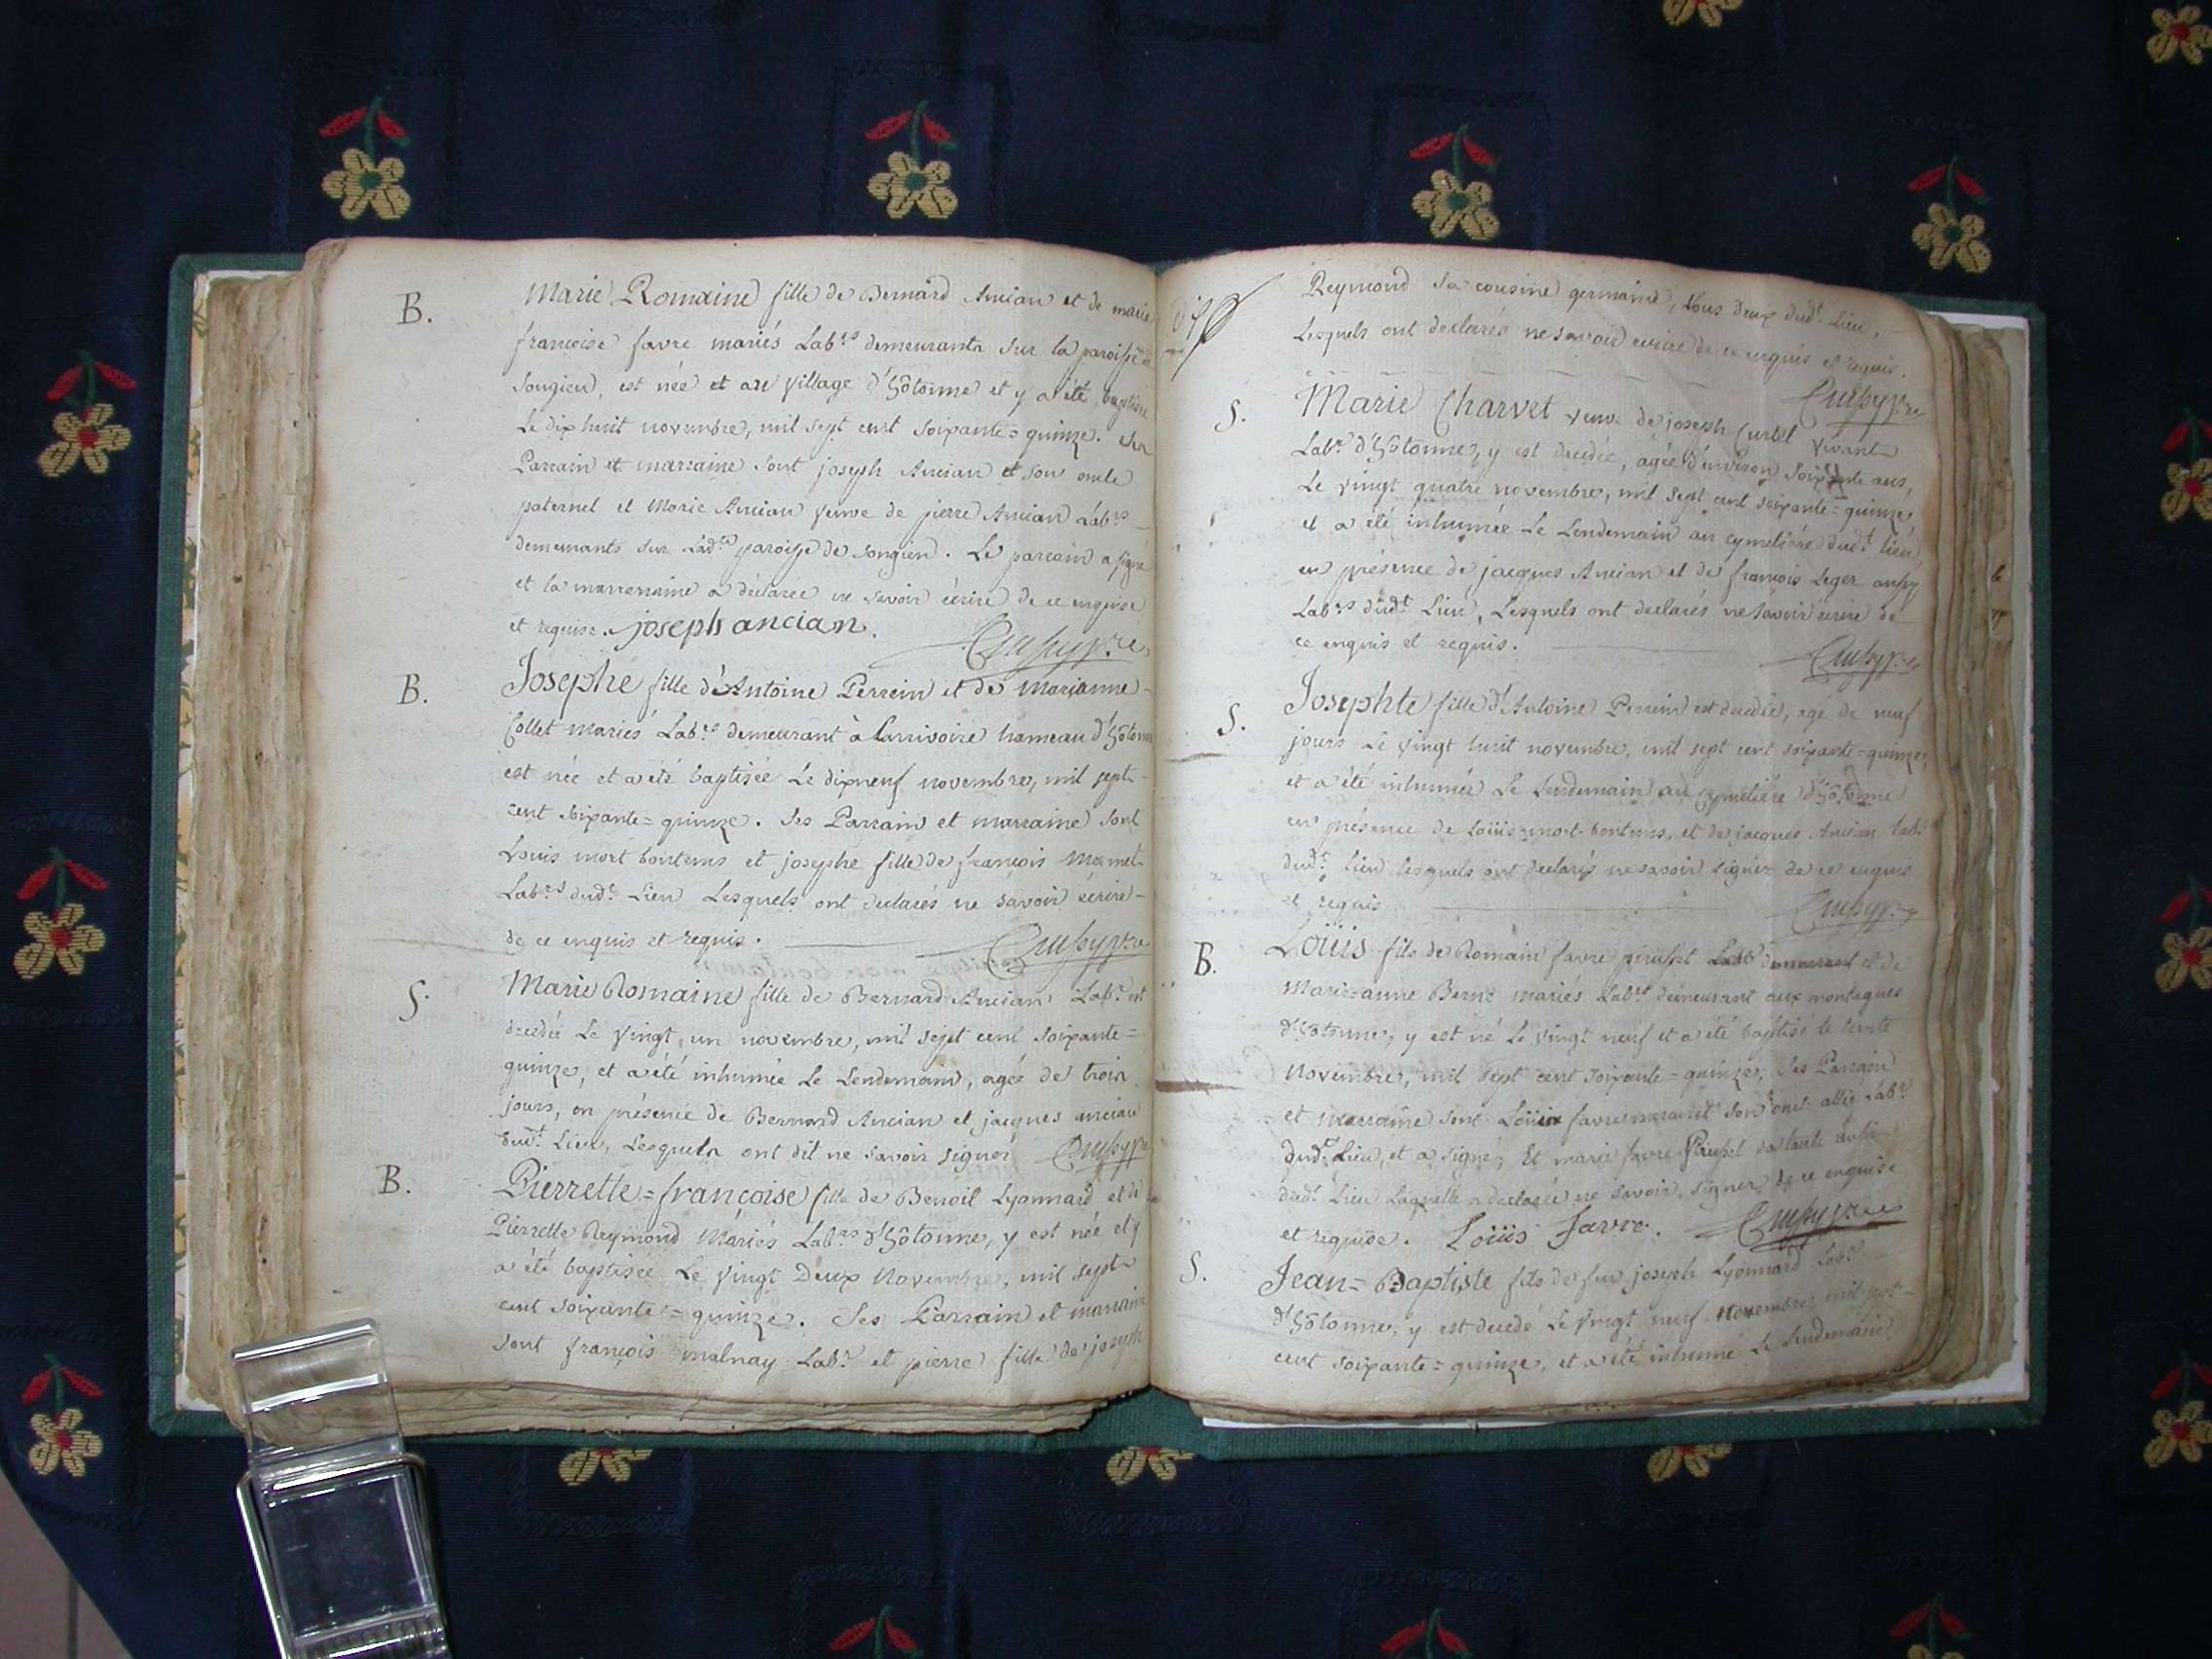 B.
Marie Romaine fille de Bernard Ancian et de marie
francoise favre mariés Lab.rs demeurants sur la paroisse de
Songieu, est née et au village d'hôtonne et y a été baptisée
Le dix huit novembre, mil sept cent soixante=quinze. Ses
Parrain et marraine sont joseph Ancian et son oncle
paternel et Marie Ancian veuve de pierre Ancian Lab.rs
demeurants sur Lad.te paroisse de Songieu. Le parrain a signé
et la marreraine a déclarée ne savoir écrire de ce enquise
et requise. joseph ancian.
B.
Josephe fille d'Antoine Perrein et de marianne
Collet mariés Lab.rs demeurant à Larrivoire hameau d'hôtonne
est née et a été baptisée Le dixneuf novembre, mil sept
cent soixante=quinze. Ses Parrain et marraine sont
Louis mort bontems et josephe fille de françois Mermet
Lab.rs dud.t Lieu Lesquels ont declarés ne savoir écrire
de ce enquis et requis.
S.
Marie Romaine fille de Bernard Ancian Lab.r est
decedée Le vingt un novembre, mil sept cent soixante=
quinze, et a été inhumée Le Lendemain, agée de trois
jours, en présence de Bernard Ancian et jacques ancian
dud.t Lieu, Lesquels ont dit ne savoir signer
B.
Pierrette=françoise fille de Benoit Lyonnard et de
Pierrette Reymond Mariés Lab.rs d'hôtonne, y est née et y
a été baptisée Le vingt deux Novembre, mil sept
cent soixante=quinze. Ses Parrain et marraine
sont françois malnay Lab.r et pierre fille de joseph
Reymond sa cousine germaine, tous deux dud.t Lieu,
Lesquels ont declarés ne savoir ecrire de ce enquis et requis.
S.
Marie Charvet veuve de joseph Curtet vivant
Lab.r d'hôtonne, y est decedée, agée d'environ soixante ans,
Le vingt quatre novembre, mil sept cent soixante=quinze
et a été inhumée Le Lendemain au cymetiére dud.t lieu
en présence de jacques Ancian et de françois Leger aussy
Lab.rs dud.t Lieu, Lesquels ont declarés ne savoir écrire de
ce enquis et requis.
S.
Josephte fille d'Antoine Perrein est decedée, agé de neuf
jours Le vingt huit novembre, mil sept cent soixante=quinze,
et a été inhumée Le Lendemain au cymetiére d'hôtonne
en présence de Loüis mort-bontems, et de jacques Ancian Lab.rs
dud.t lieu lesquels ont declarés ne savoir signer de ce enquis
et requis
B.
Loüis fils de Romain favre et de
Marie=anne Berne mariés Lab.rs demeurant aux montagnes
d'hotonne, y est né Le vingt neuf et a été baptisé le trente
Novembre, mil sept cent soixante=quinze, Ses Parrain
et marraine sont Loüis favre son oncle allié Lab.r
dud.t Lieu, et a signé; Et marie favre sa tante aussi
dud.t Lieu Laquelle a declarée ne savoir signer de ce enquise
et requise. Loüis Favre.
S.
Jean=Baptiste fils de feu joseph Lyonnard Lab.r
d'hôtonne, y est decedé Le vingt neuf Novembre mil sept
cent soixante=quinze, et a été inhumé Le Lendemain